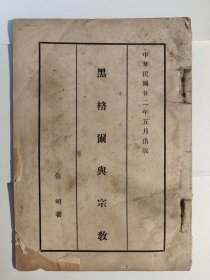 中華民國廿二年五月出版
黑格爾與宗敎
張曉著